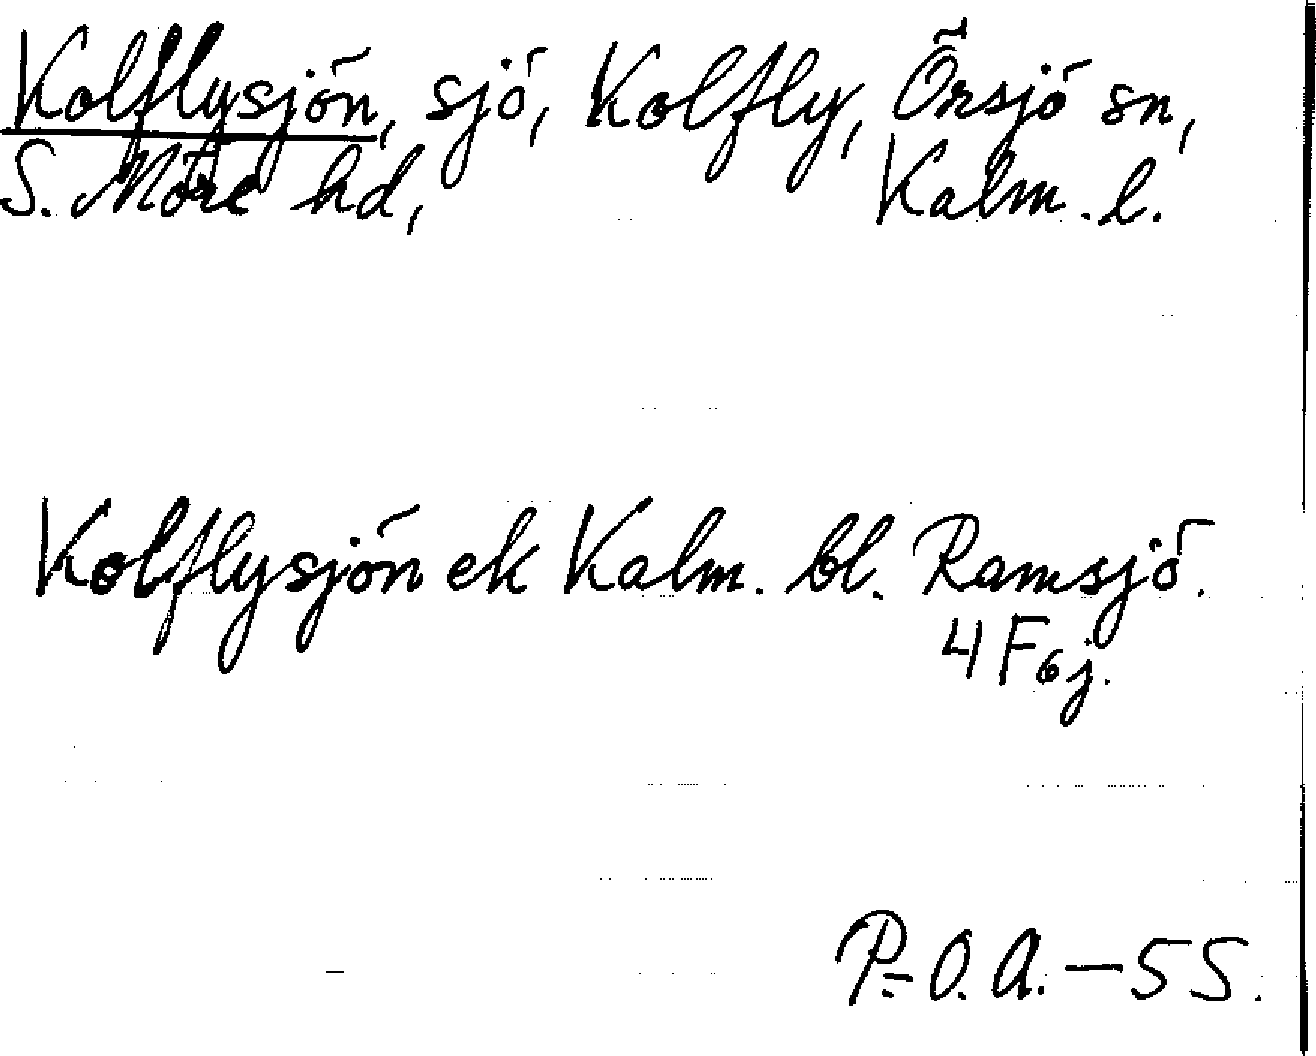 Kolflysjön, sjö, Kolfly, Örsjö sn,
S. Möre hd, Kalm. l.
Kolflysjön ek Kalm. bl. Ramsjö.
4F6j.
P.-O.A.-55.